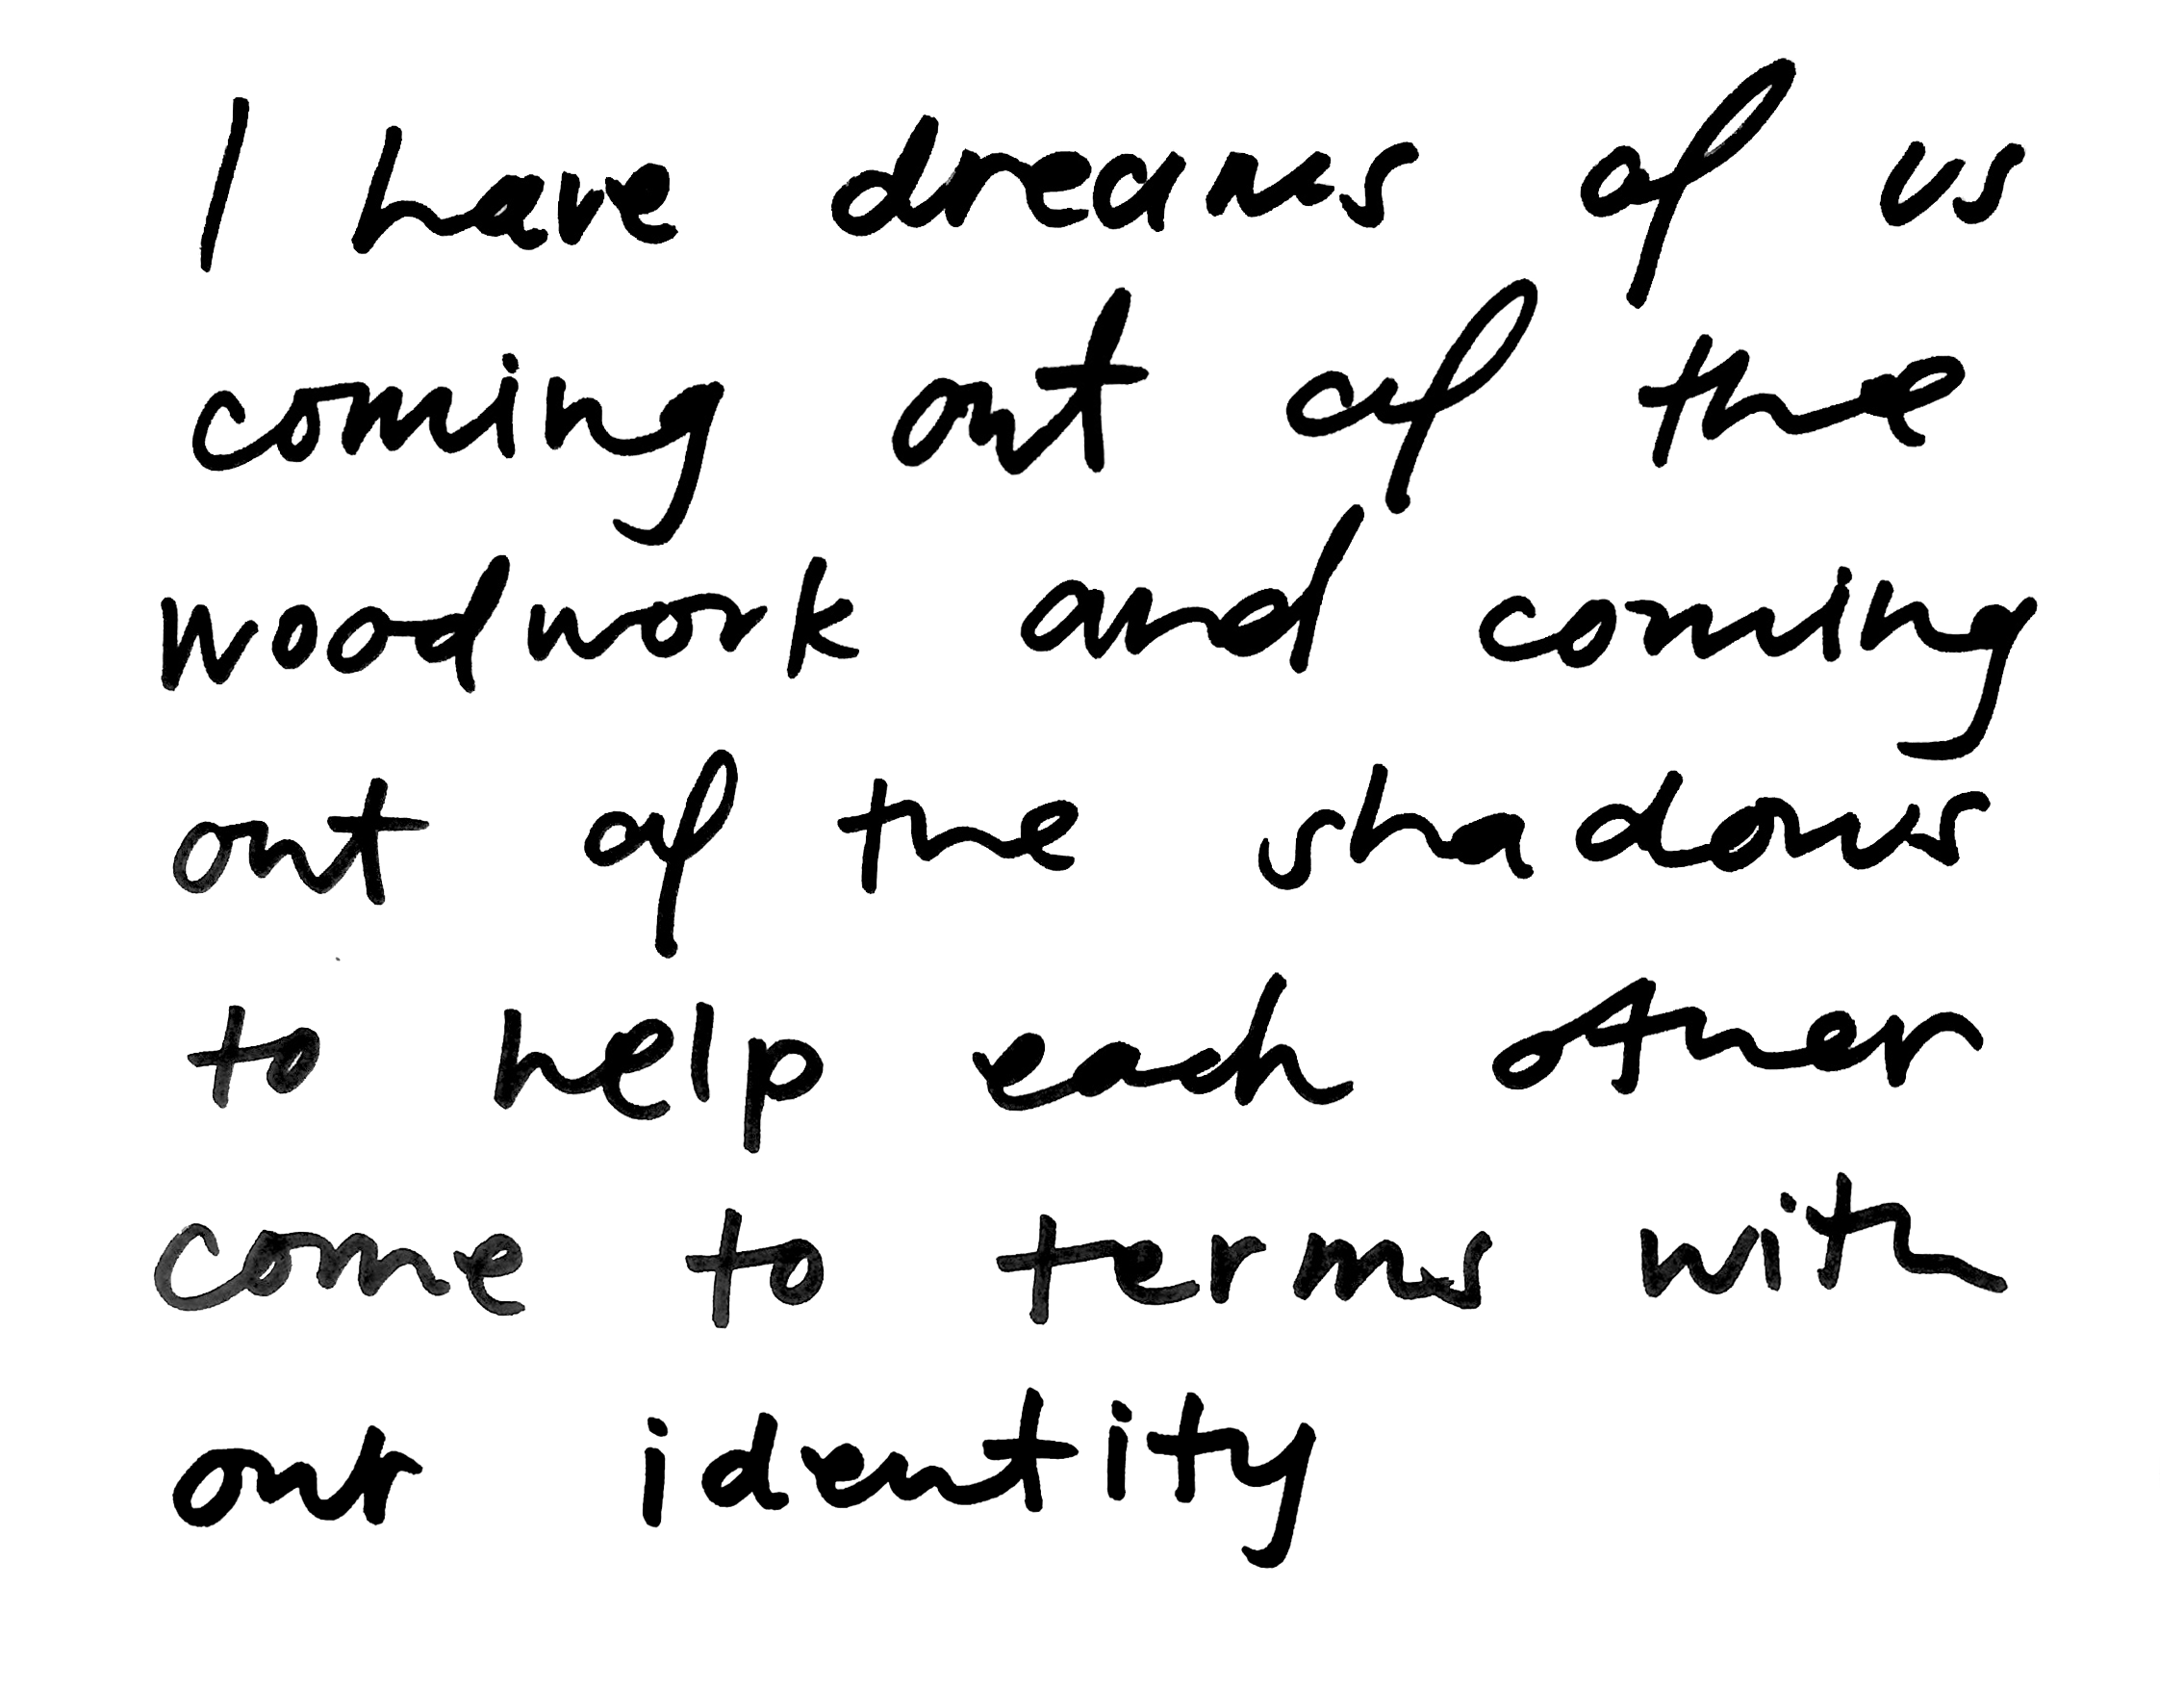 I have dreams of us
coming out of the
woodwork and coming
out of the shadows
to help each other
come to terms with
our identity